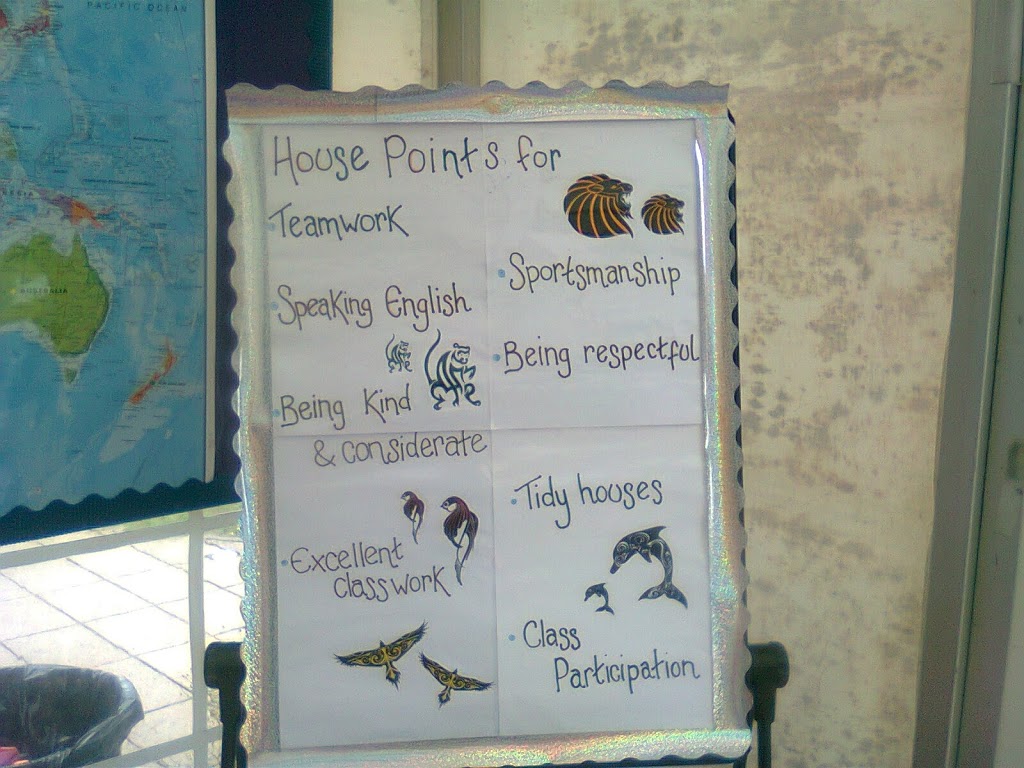 PACIFIC OCEAN
AUSTRALIA
House Points for
Teamwork
Speaking English
Being Kind
& considerate
Excellent
classwork
Sportsmanship
Being respectful
Tidy houses
Class
Participation